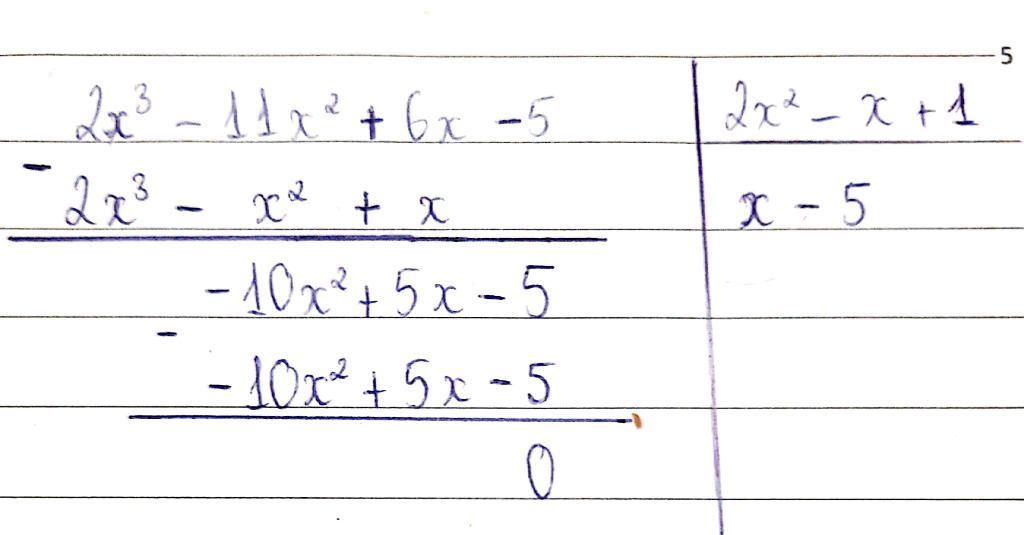 5
2x³ - 11x² + 6x - 5 | 2x² - x + 1
- 2x³ - x² + x | x - 5
-10x² + 5x - 5
-
-10x² + 5x - 5
0